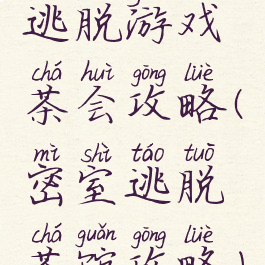 逃脱游戏
chá huì gōng lüè
茶会攻略(
mì shì táo tuō
密室逃脱
chá guǎn gōng lüè
茶馆攻略)